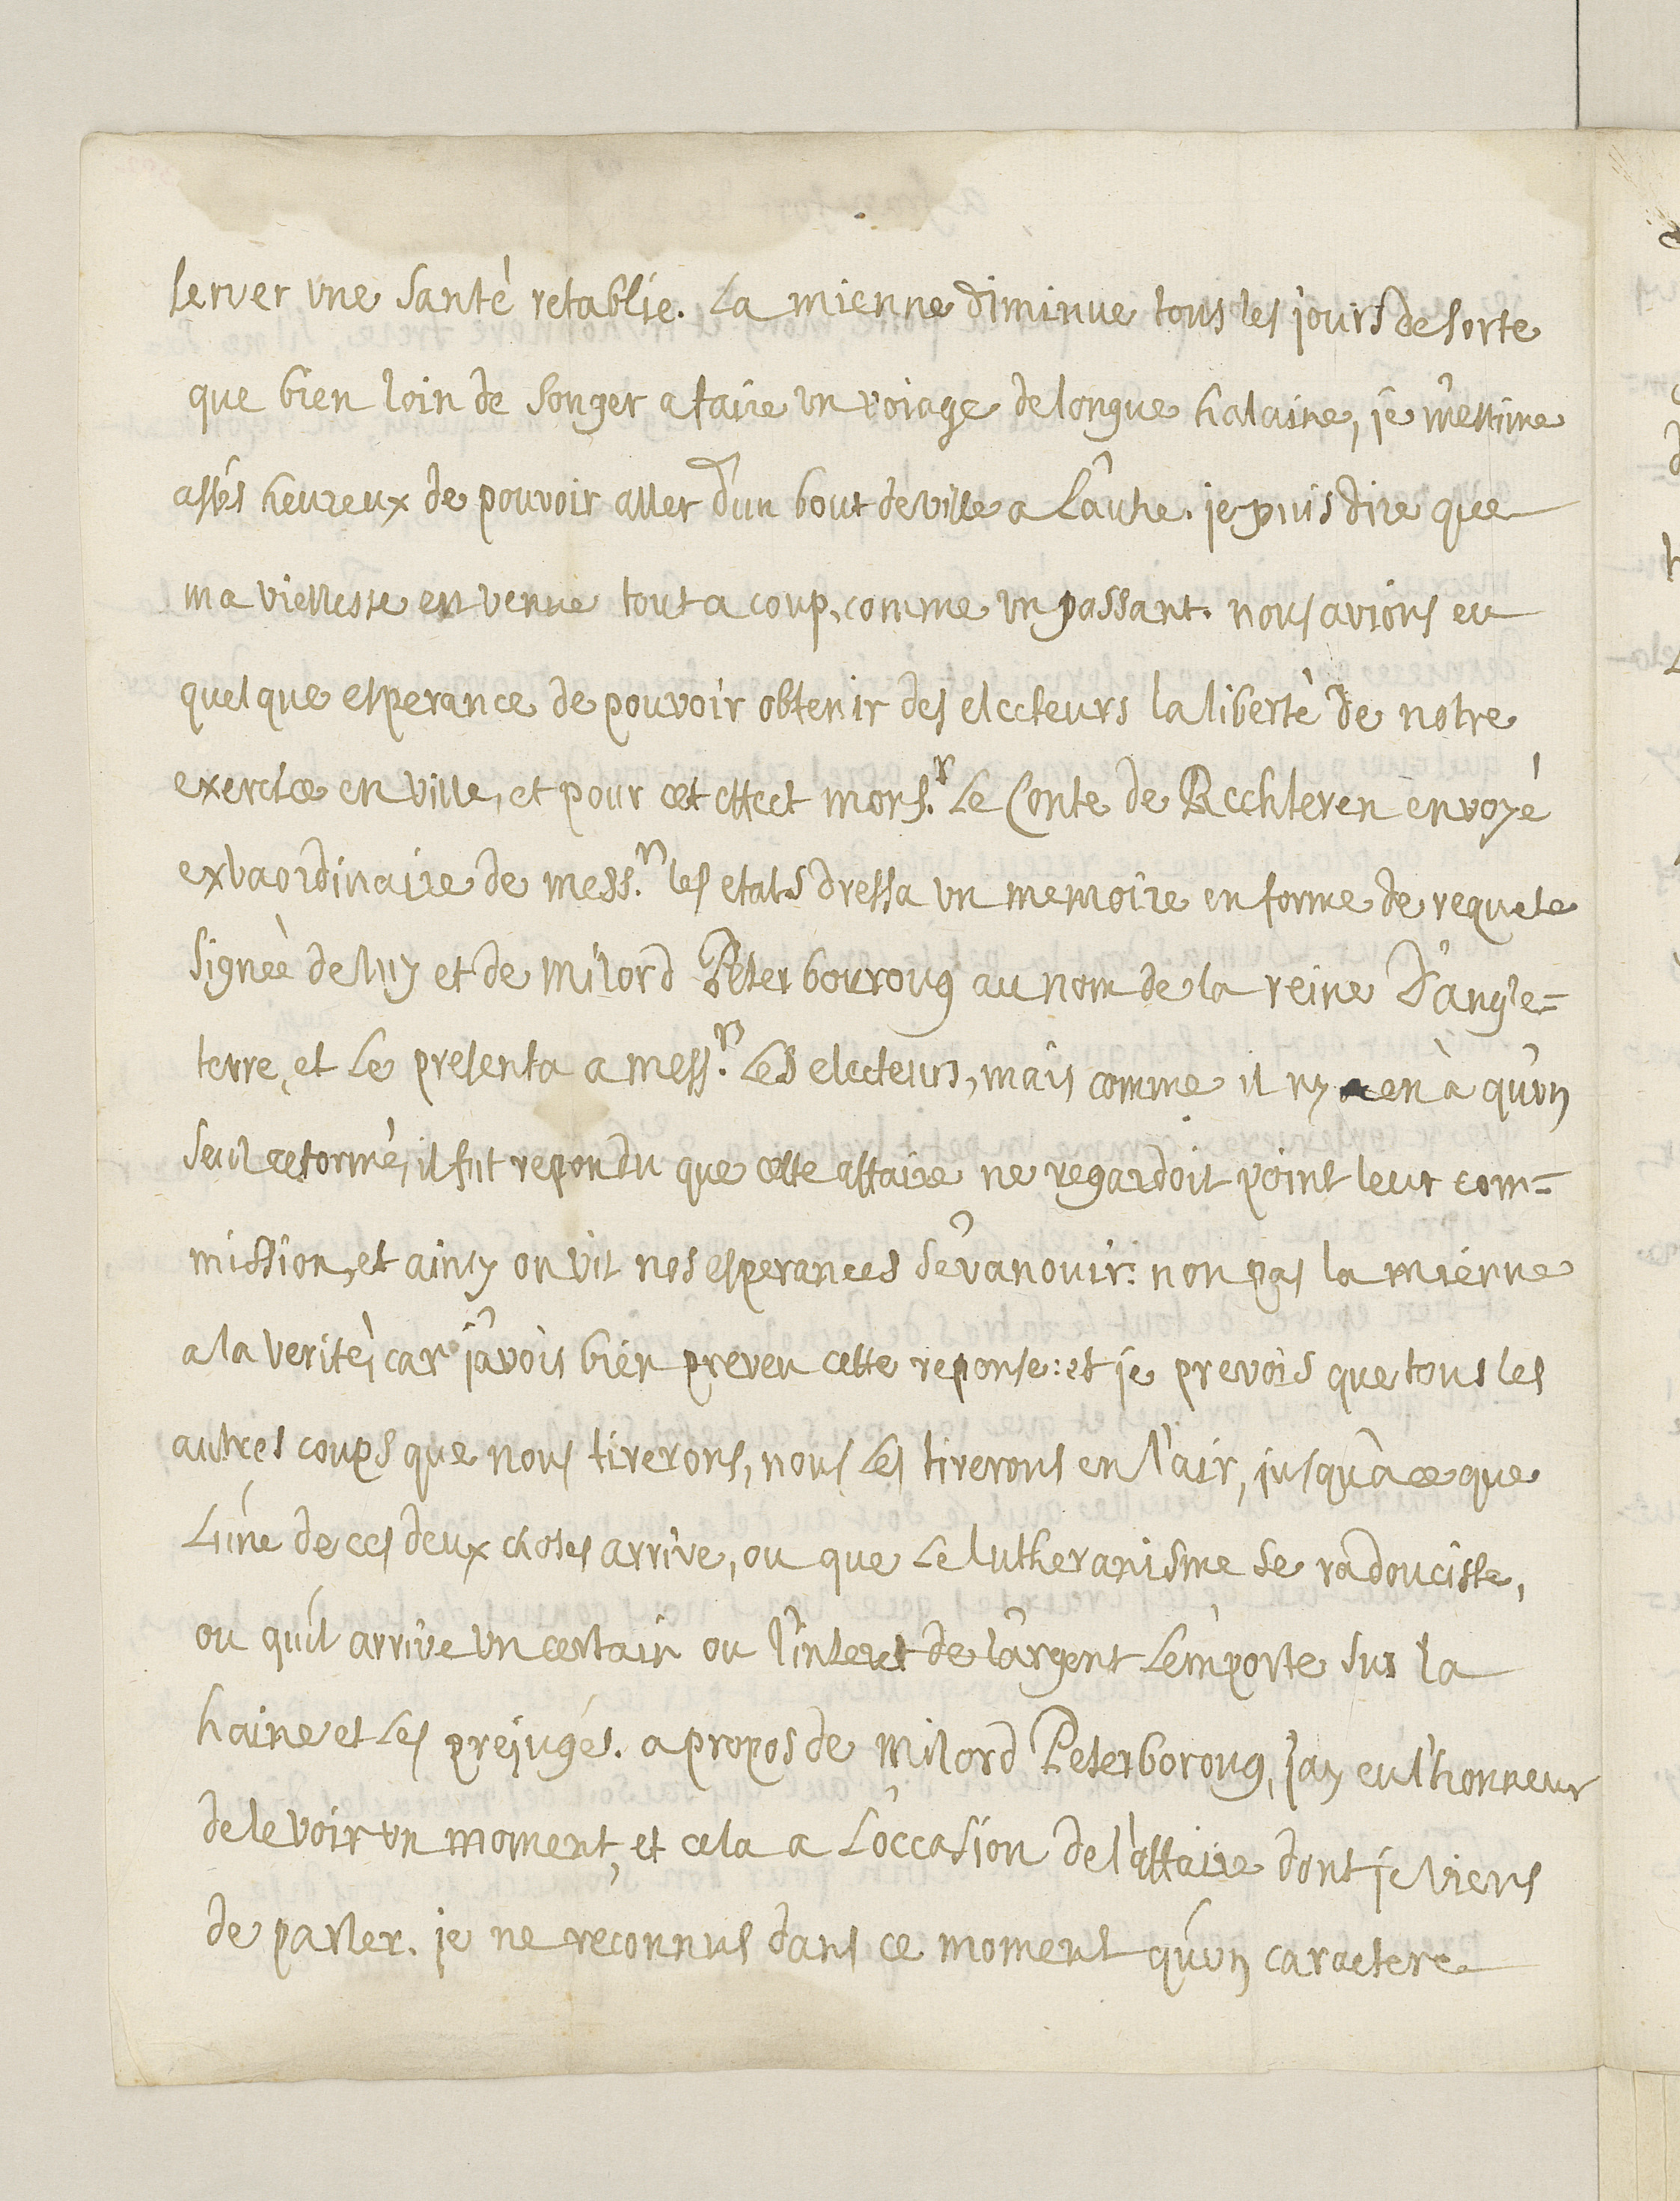 server une santé retablie. La mienne diminue tous les jours de sorte
que bien loin de songer a faire un voiage de longue halaine, je m'estime
assés heureux de pouvoir aller d'un bout de ville a L'autre. je puis dire que
ma viellesse est venue tout a coup, comme un passant. nous avions eu
quelque esperance de pouvoir obtenir des electeurs la libertè de notre
exercice en ville, et pour cet effect mons.r Le Conte de Rechteren envoyé
extraordinaire de mess.rs les etats dressa un memoire en forme de requete
signeè de luy et de Milord Peterbouroug au nom de la reine D'angle=
terre, et Le presenta a mess.rs Les electeurs, mais comme il ny en à qu'un
seul reformé, il fut repondu que cette affaire ne regardoit point leur com=
mission, et ainsy on vit nos esperances s'evanouir: non pas la mienne
a la verité, car j'avois bien preveu cette reponse: et je prevois que tous les
autres coups que nous tirerons, nous Les tirerons en l'air, jusqu'a ce que
L'une de ces deux choses arrive, ou que Le lutheranisme se radoucisse,
ou qu'il arrive un certain ou l'interet de l'argent L'emporte sur la
haine et Les prejugés. a propos de Milord Peterboroug, j'ay eu l'honneur
de le voir un moment, et cela a L'occasion de l'affaire dont je viens
de parler. je ne reconnus dans ce moment qu'un caractere